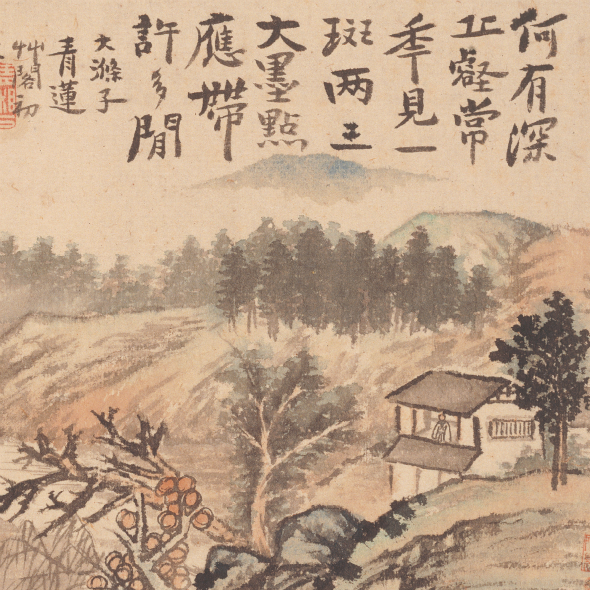 何有深
丘壑常
秊見一
斑两三
大墨點
應帶
許多閒
大滌子
青蓮
艸閣初